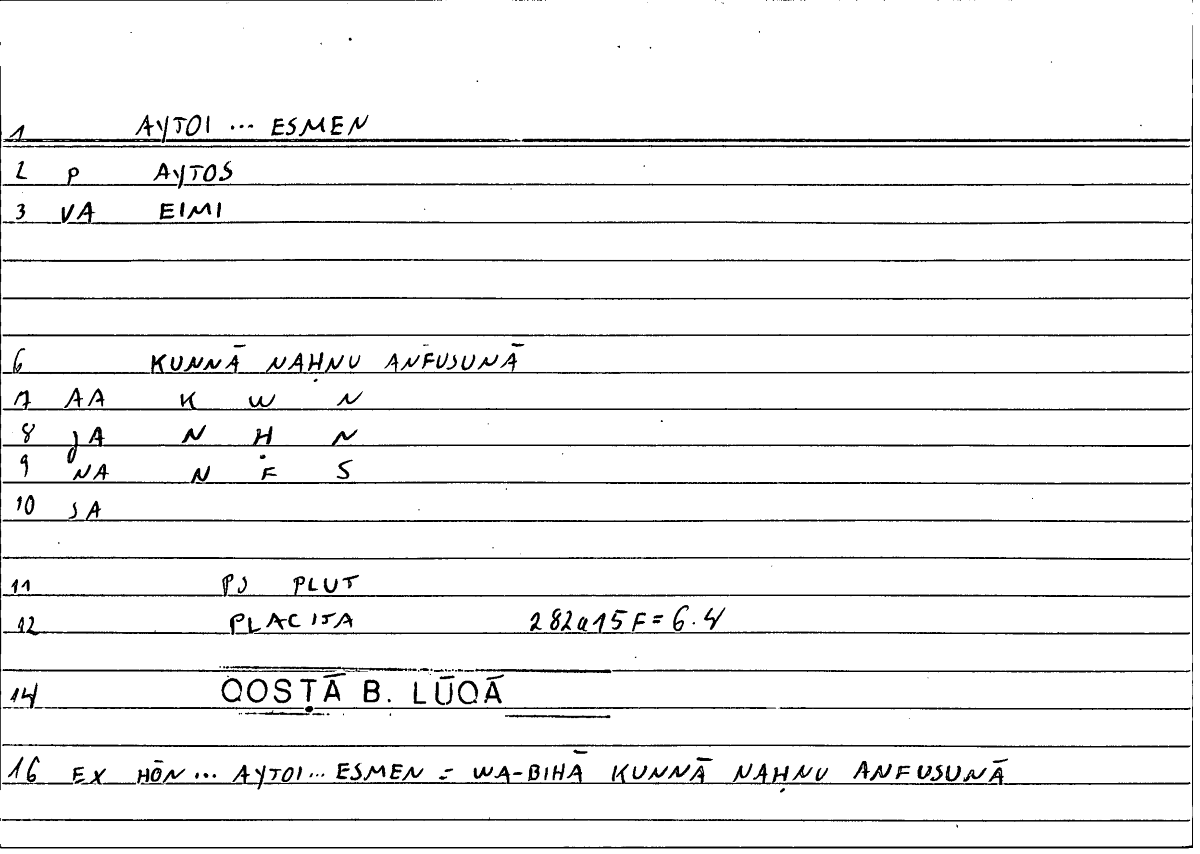 1 AYTOI ... ESMEN
2 P AYTOS
3 VA EIMI
6 KUNNĀ NAḤNU ANFUSUNĀ
7 AA K W N
8 JA N Ḥ N
9 NA N F S
10 JA
11 PS PLUT
12 PLACITA 282a15F=6.4
14 QOSṬĀ B. LŪQĀ
16 EX HŌN ... AYTOI ... ESMEN = WA-BIHĀ KUNNĀ NAḤNU ANFUSUNĀ